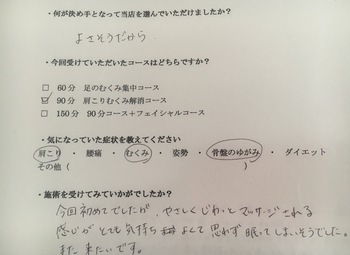 ・何が決め手となって当店を選んでいただけましたか？
よさそうだから
・今回受けていただいたコースはどちらですか？
□ 60分 足のむくみ集中コース
☑ 90分 肩こりむくみ解消コース
□ 150分 90分コース＋フェイシャルコース
・気になっていた症状を教えてください
肩こり ・ 腰痛 ・ むくみ ・ 姿勢 ・ 骨盤のゆがみ ・ ダイエット
その他（ ）
・施術を受けてみていかがでしたか？
今回初めてでしたが、やさしくじわっとマッサージされる
感じがとても気持ちよくて思わず眠ってしまいそうでした。
また来たいです。